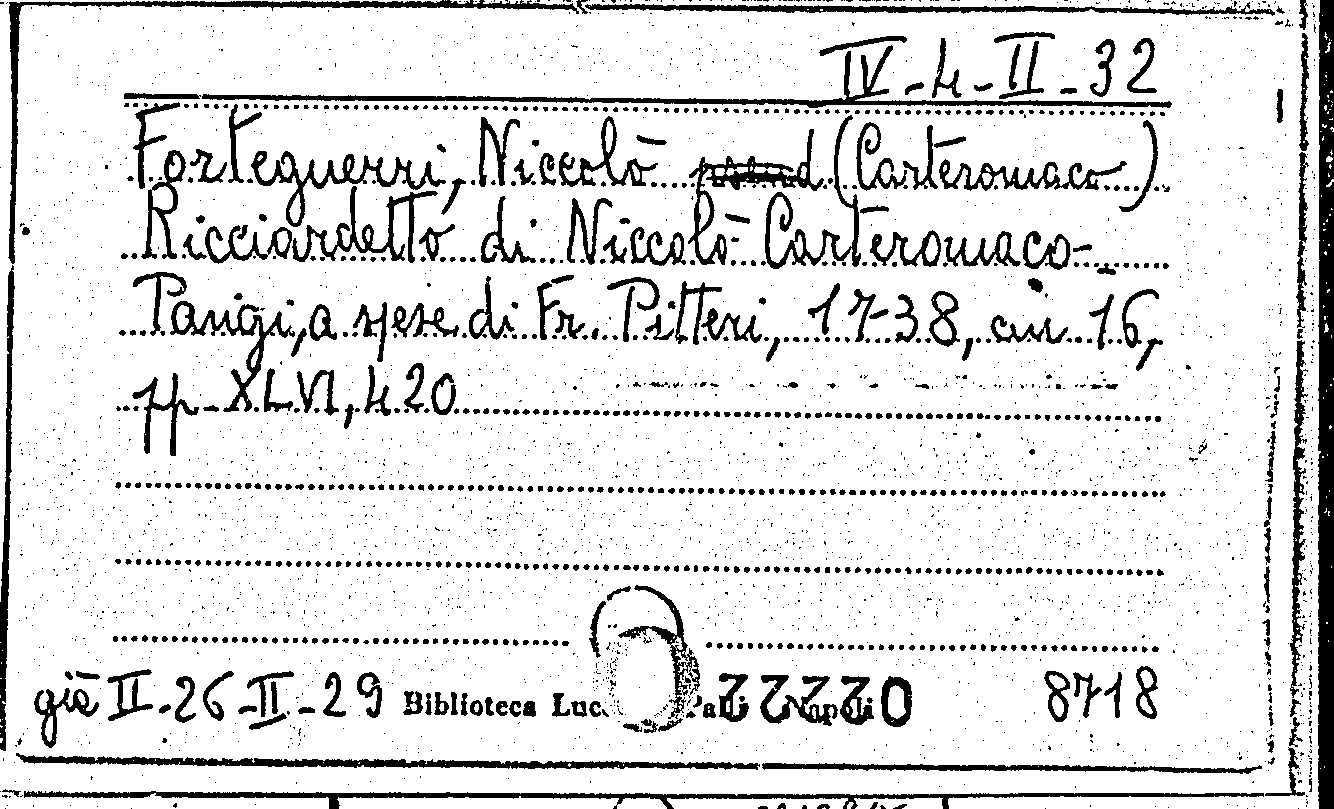 IV-4-II-32
Forteguerri, Niccolò (Carteromaco)
Ricciardetto di Niccolò Carteromaco-
Parigi, a spese di Fr. Pitteri, 1738, in 16,
pp XLVI, 420
già II-26-II-29 Biblioteca Lucc Palli Napoli 8718